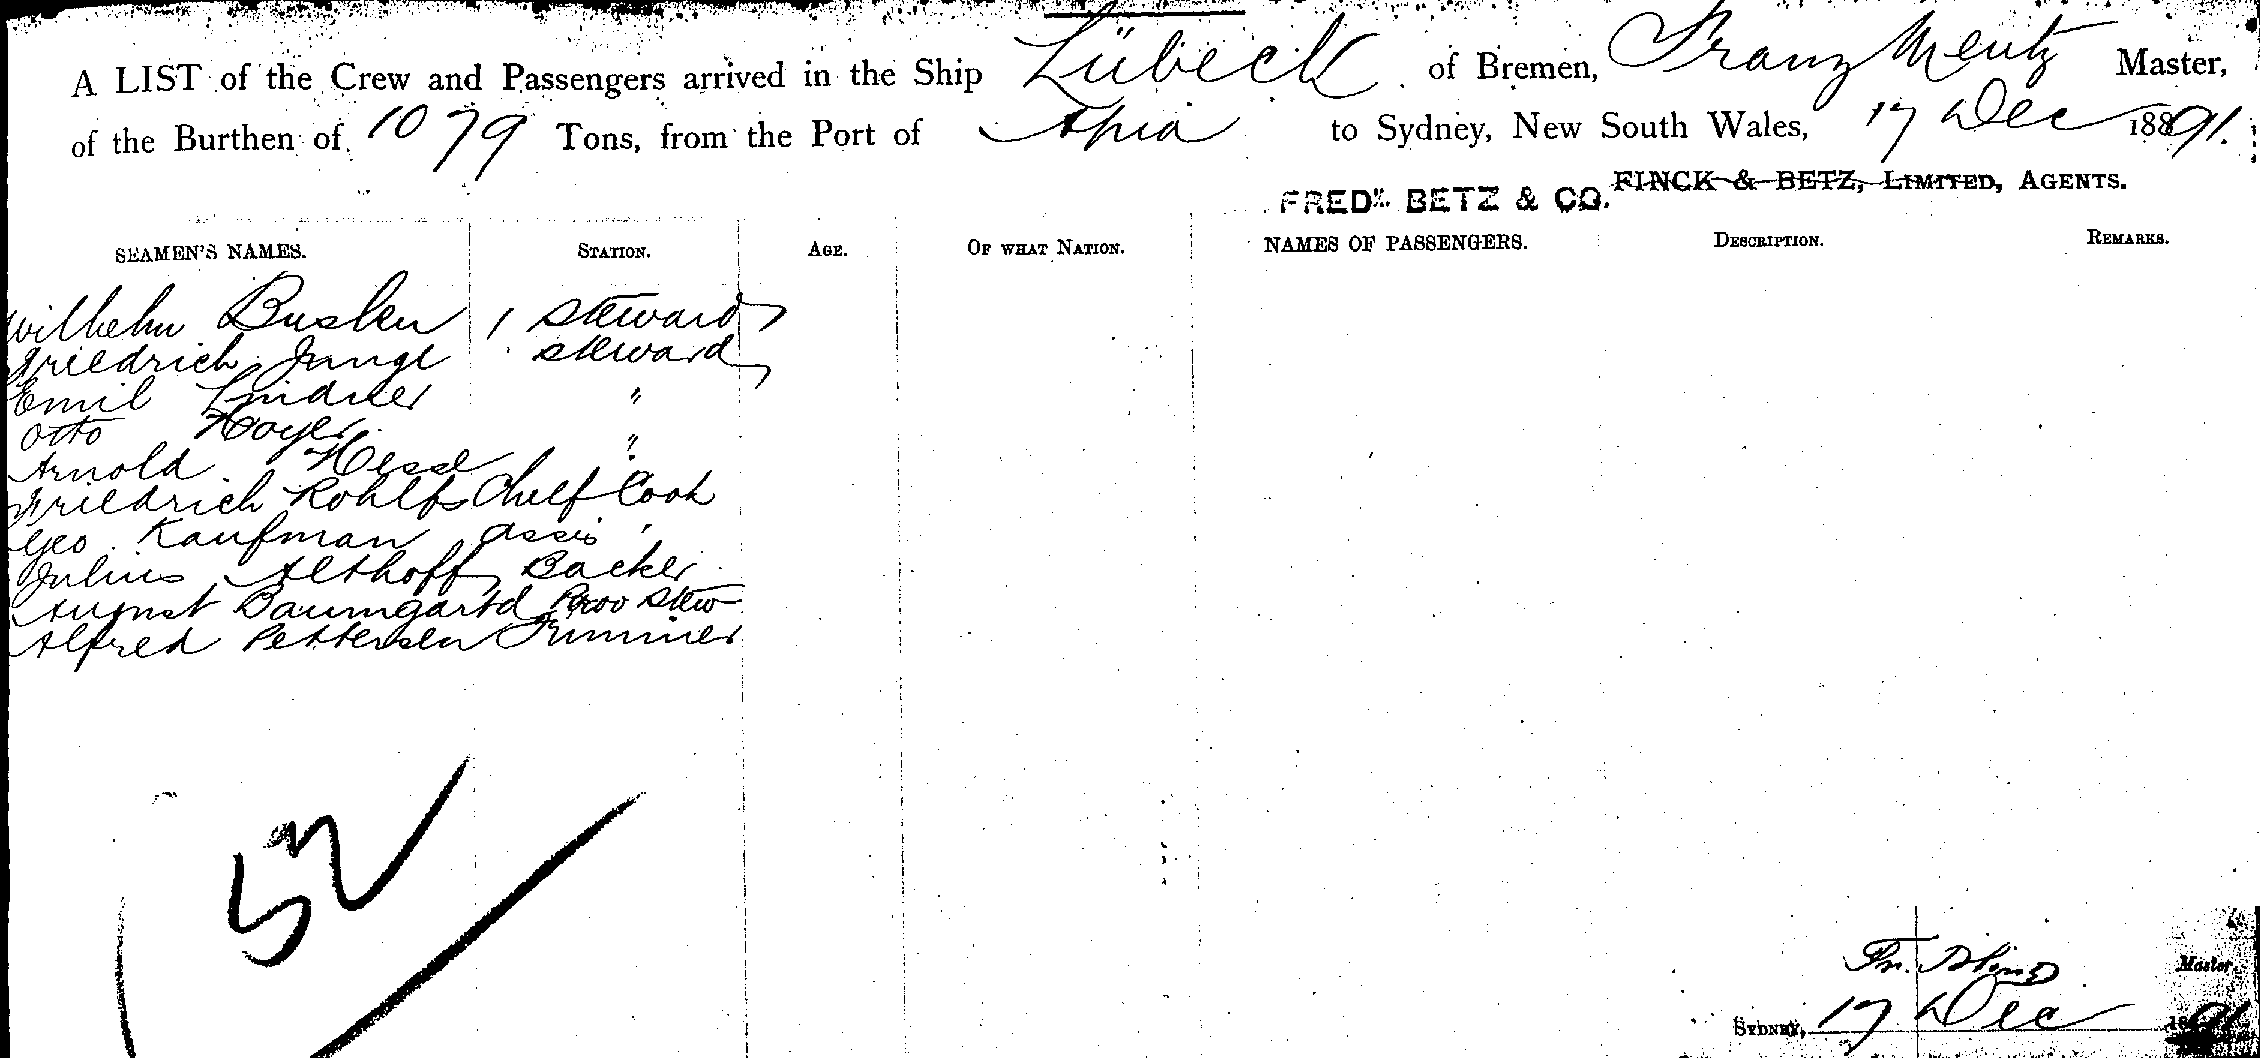 A LIST of the Crew and Passengers arrived in the Ship Lübeck of Bremen, Franz Mentz Master,
of the Burthen of 1079 Tons, from the Port of Apia to Sydney, New South Wales, 17 Dec 1891.
FREDK. BETZ & CO. FINCK & BETZ, LIMITED, AGENTS.
SEAMEN'S NAMES. STATION. AGE. OF WHAT NATION. NAMES OF PASSENGERS. DESCRIPTION. REMARKS.
Wilhelm 1 Steward
Friedrich Junge Steward
Emil Lindner "
Otto Hoyer "
Arnold Hesse
Friedrich Rohlfs Chief Cook
Geo Kaufman Assis "
Julius Althoff Backer
August Baumgartd Prov Stew
Alfred Pettersen Trimmer
52
Master.
SYDNEY, 17 Dec 1891